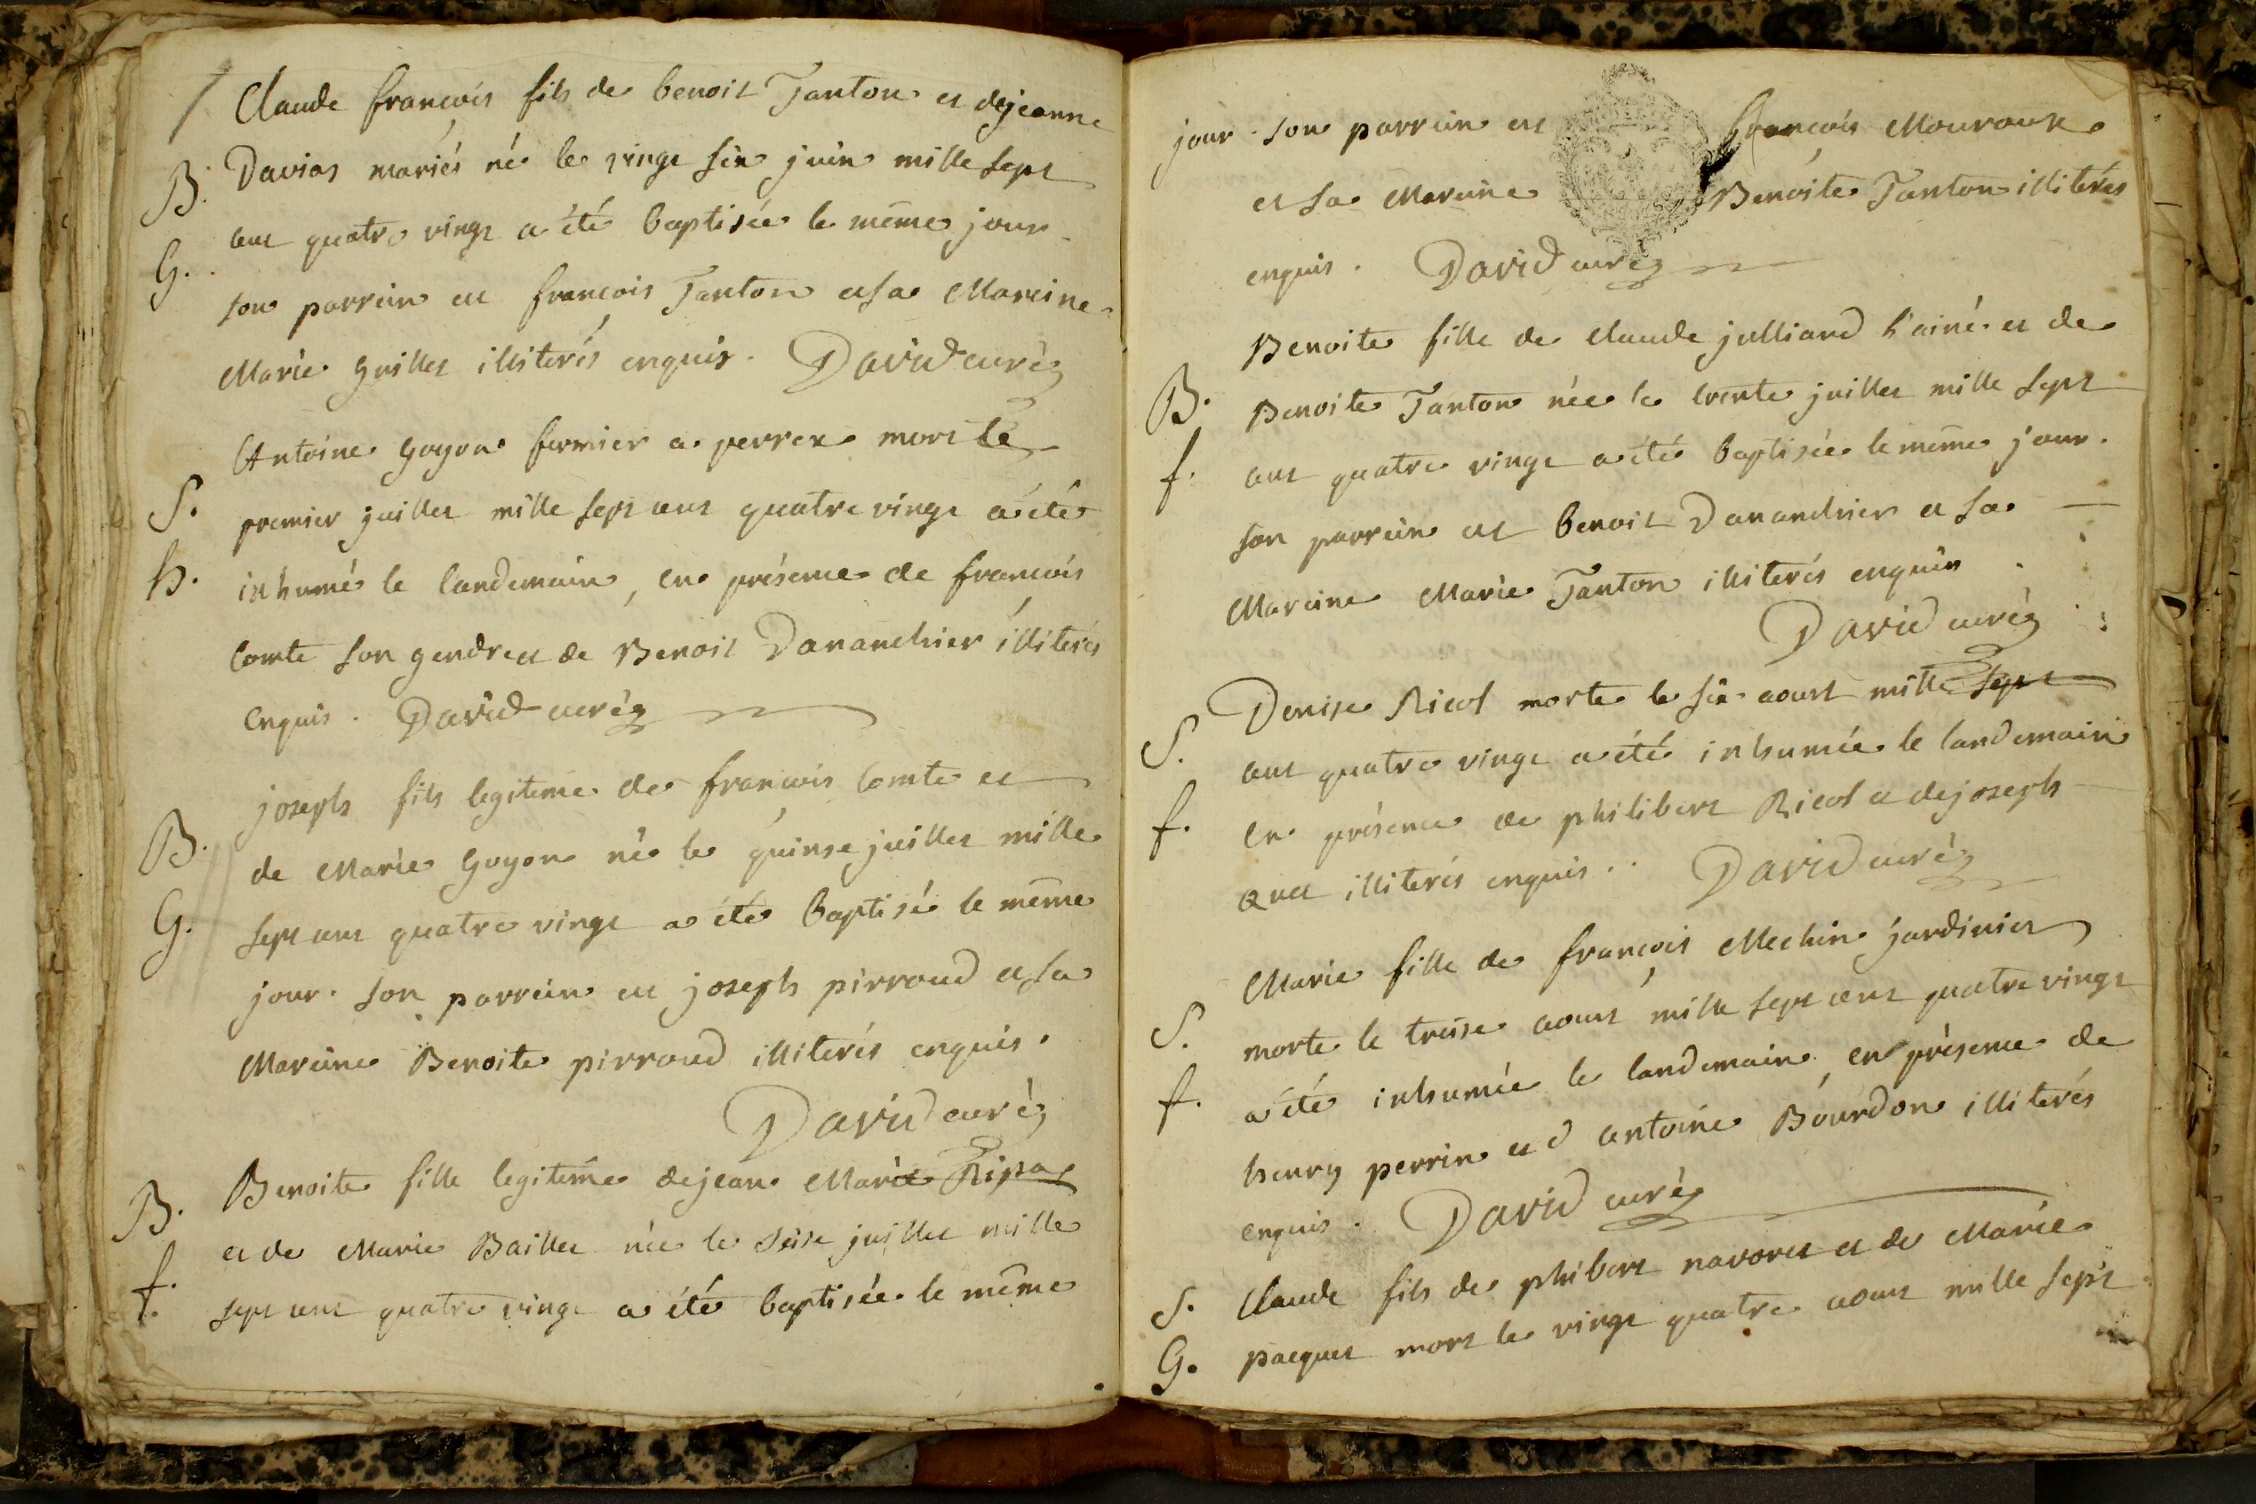 Claude francois fils de benoit Tanton et dejeanne
B. Davias mariés né le vingt six juin mille sept
G. cent quatre vingt a été baptisée le même jour
son parrein est francois Tanton et sa Mareine
Marie Guillet illiterés enquis. David curé
Antoine Goyon fermier a perrex mort le
S. premier juillet mille sept cent quatre vingt a été
h. inhumé le landemain, en présence de francois
Comte son gendre et de Benoit Dananchier illiterés
enquis. David curé
joseph fils legiteme de francois Comte et
B. de Marie Goyon né le quinse juillet mille
G. sept cent quatre vingt a été baptisé le même
jour. son parrein est joseph pirroud et sa
Mareine Benoite pirroud illiterés enquis.
David curé
B. Benoite fille legiteme dejean Marie Ripas
et de Marie Baillet née le seise juillet mille
f. sept cent quatre vingt a été baptisée le même
jour. son parrein est francois Mouroux
et sa Mareine Benoite Tanton illiterés
enquis. David curé
Benoite fille de Claude julliard l'ainé et de
B. Benoite Tanton née le trente juillet mille sept
f. cent quatre vingt a été baptisée le même jour.
son parrein est benoit Dananchier et sa
Mareine Marie Tanton illiterés enquis
David curé
S. Denise Ricol morte le six aoust mille sept
cent quatre vingt a été inhumée le landemain
f. en présence de philibert Ricol et dejoseph
illiterés enquis. David curé
Marie fille de francois Mechin jardinier
S. morte le treise aoust mille sept cent quatre vingt
f. a été inhumée le landemain en présence de
henry perrin et d antoine Bourdon illiterés
enquis. David curé
S. Claude fils de phibert navoret et de Marie
G. pacquet mort le vingt quatre aoust mille sept